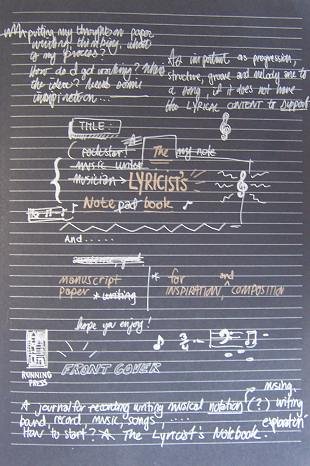 putting my thoughts on paper
writing, thinking, what
is my process?
How do I get writing?
the ideas? need some
inspiration...
As important as progression,
structure, groove and melody are to
a song, if it does not have
the LYRICAL CONTENT to support
TITLE:
rockstar!
The
my note
music writer
musician → LYRICIST'S
Notepad book
And.....
manuscript
paper * writing
* for and
INSPIRATION, COMPOSITION
hope you enjoy!
3/4
RUNNING
PRESS
FRONT COVER
A journal for recording writing musical notation (?) writing
band, record, music, songs .....
How to start? A The Lyricist's Notebook.